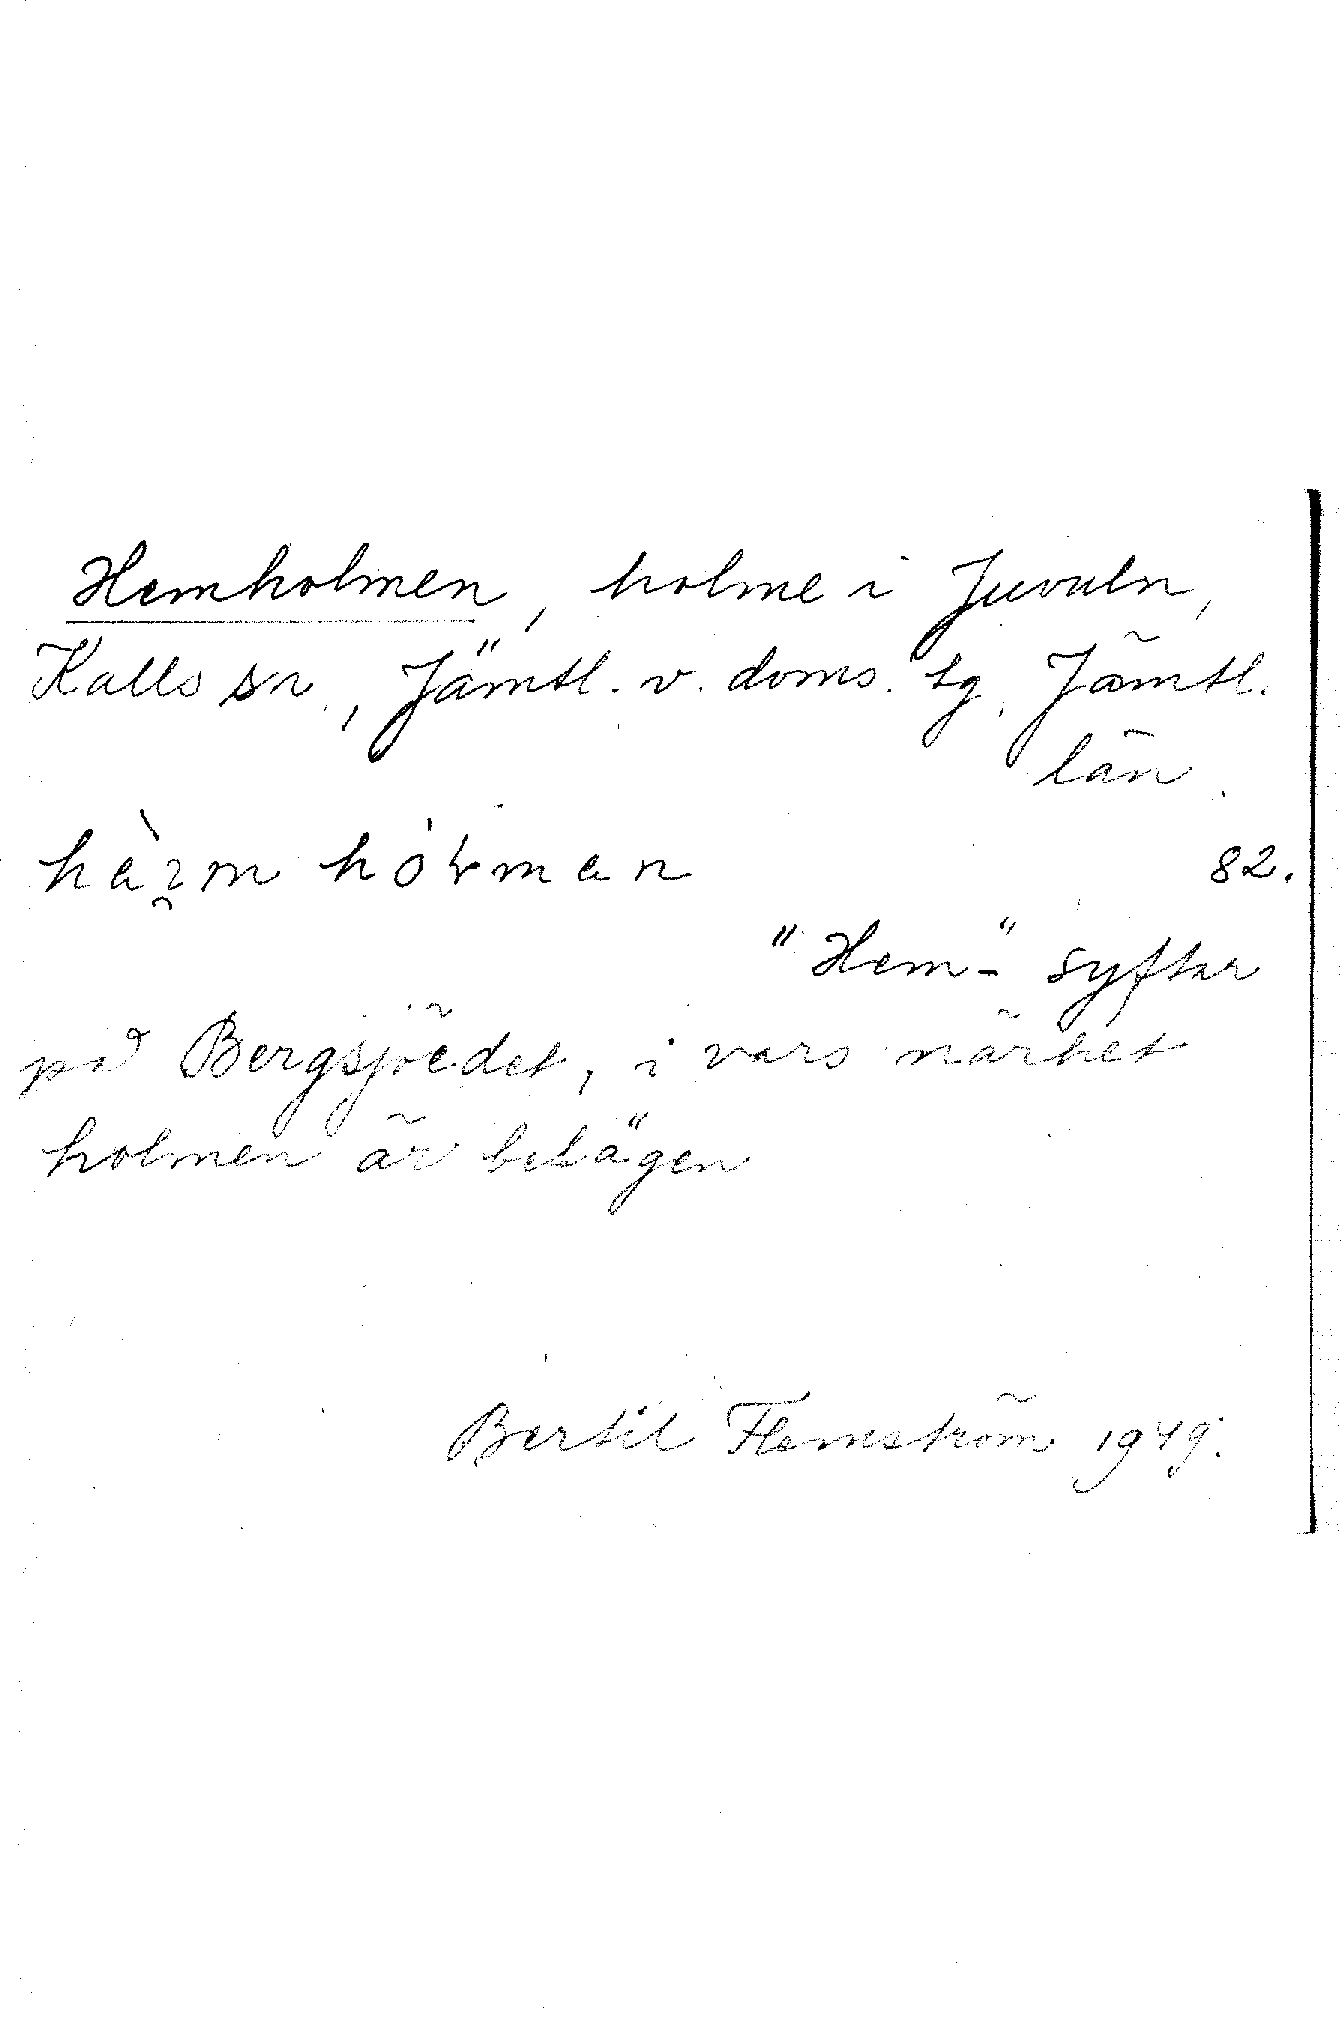 Hemholmen, holme i Juvuln,
Kalls sn., Jämtl. v. doms. tg, Jämtl.
län.
82.
"Hem-" syftar
på Bergsjöedet, i vars närhet
holmen är belägen
Bertil Flemström 1949.